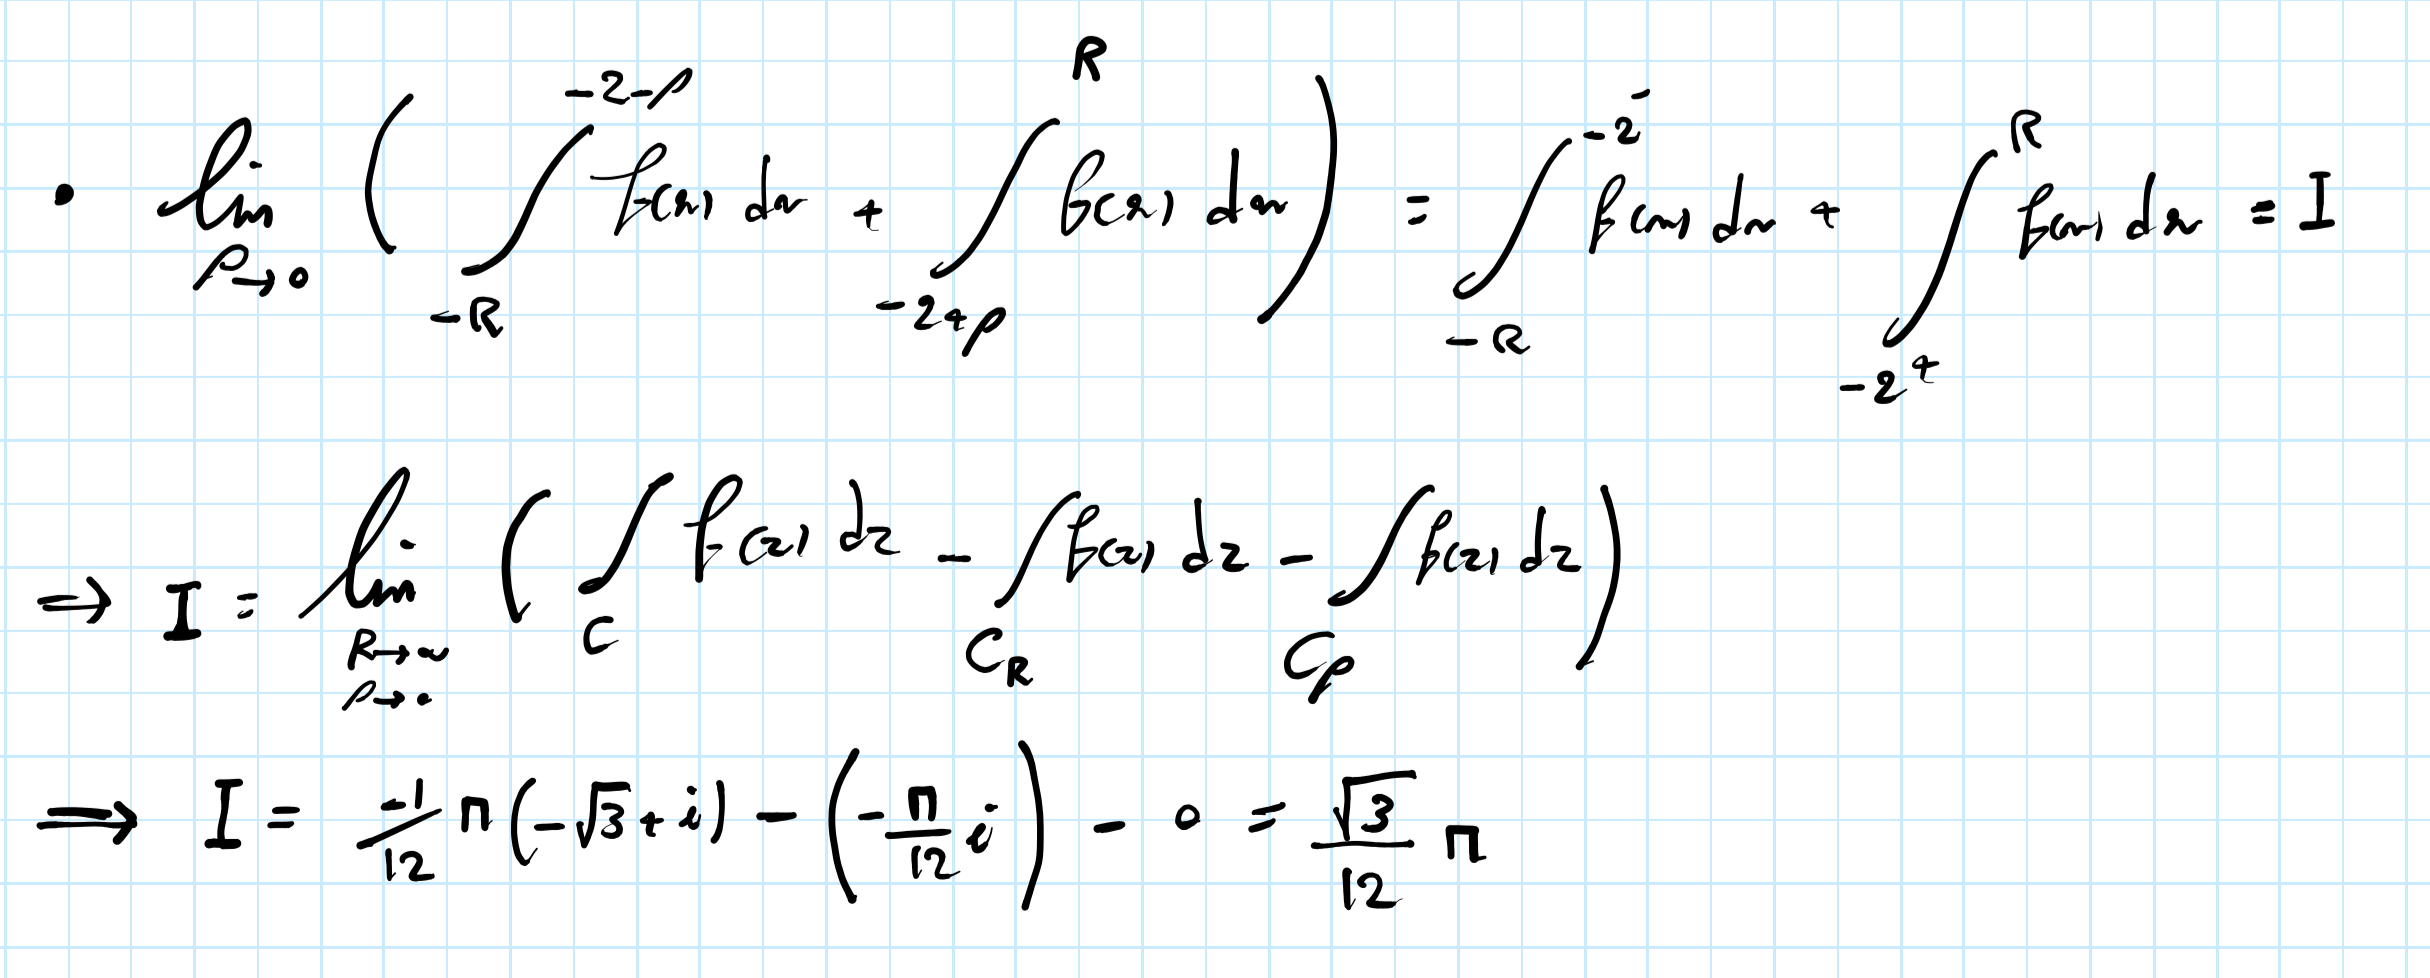 • lim_{ρ→0} ( ∫_{-R}^{-2-ρ} f(x) dx + ∫_{-2+ρ}^{R} f(x) dx ) = ∫_{-R}^{-2^-} f(x) dx + ∫_{-2^+}^{R} f(x) dx = I
⇒ I = lim_{R→∞, ρ→0} ( ∫_C f(z) dz - ∫_{C_R} f(z) dz - ∫_{C_ρ} f(z) dz )
⟹ I = \frac{-1}{12} π (-√3 + i) - ( -\frac{π}{12} i ) - 0 = \frac{√3}{12} π